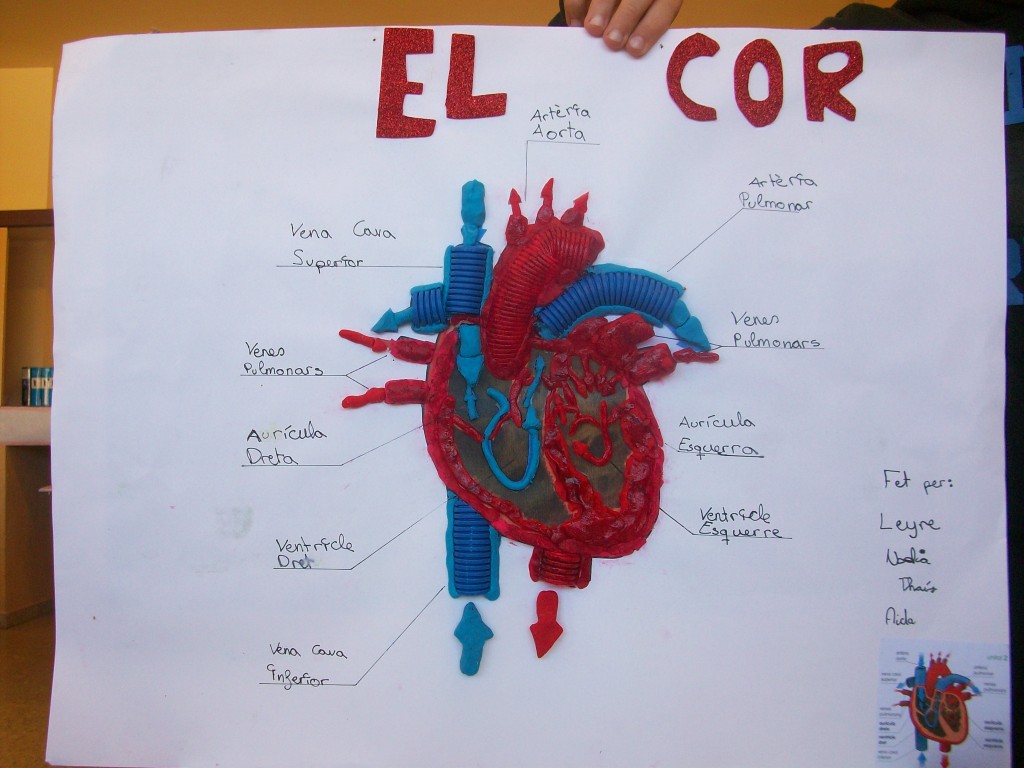 EL COR
Artèria
Aorta
Artèria
Pulmonar
Vena Cava
Superior
Venes
Pulmonars
Venes
Pulmonars
Aurícula
Dreta
Aurícula
Esquerra
Ventricle
Esquerre
Ventricle
Dret
Vena Cava
Inferior
Fet per:
Leyre
Nadia
Thais
Aida